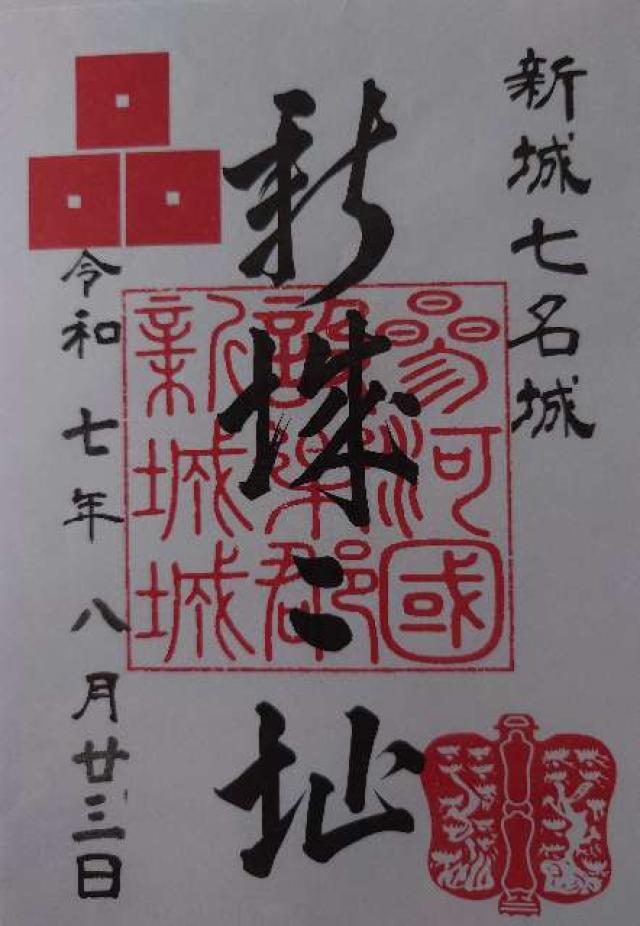 新城七名城
新城〻址
參河國
設樂郡
新城城
令和七年八月廿三日